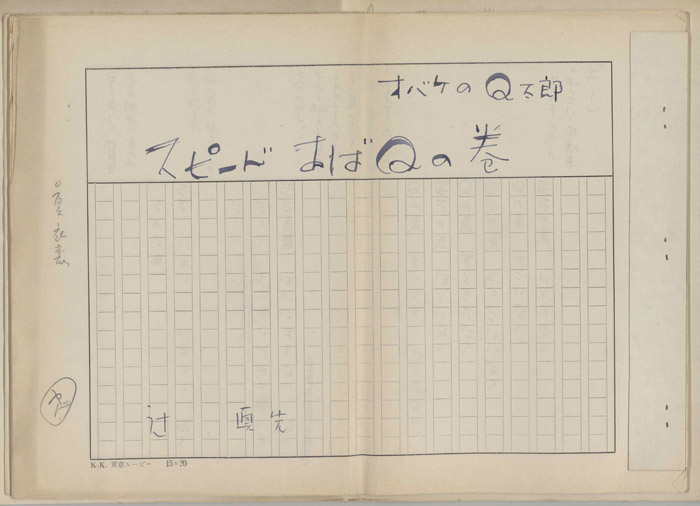 オバケのQ太郎
スピード おばQの巻
辻 真先
K.K. 東京ムービー 15×20